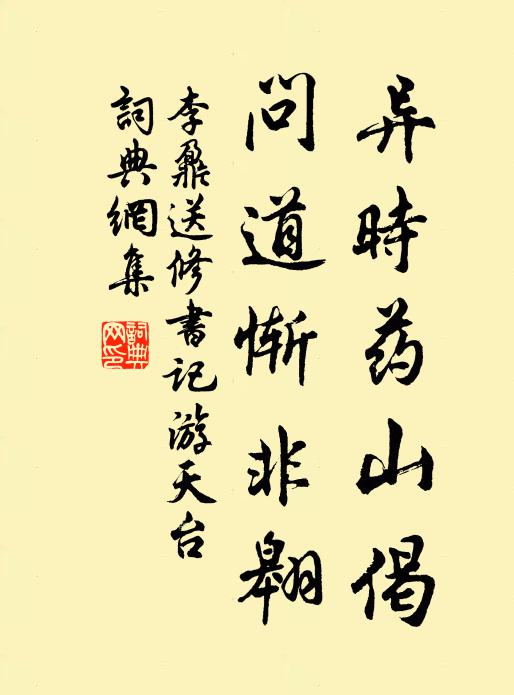 异時药山偈
问道惭非翱
李鼐送修書记游天台
詞典網集
詞典网印